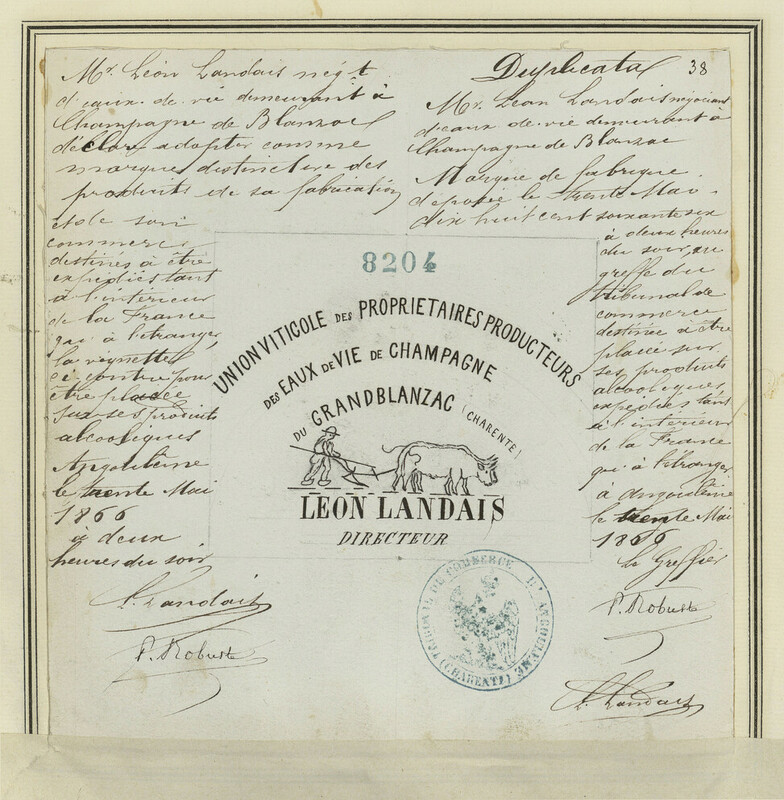 Mr. Léon Landais négt
d'eaux-de-vie demeurant à
Champagne de Blanzac
déclare adopter comme
marque distinctive des
produits de sa fabrication
et de son
commerce
destinés à être
expédiés tant
à l'intérieur
de la France
qu'à l'étranger,
la vignette
ci contre pour
être placée
sur ses produits
alcooliques
Angoulême
le trente Mai
1866
à deux
heures du soir
L. Landais
P. Robuste
Duplicata
38
Mr. Léon Landais négociant
d'eaux-de-vie demeurant à
Champagne de Blanzac
Marque de fabrique
déposée le trente Mai
dix huit cent soixante six
à deux heures
du soir, au
greffe du
tribunal de
commerce
destinée à être
placée sur
ses produits
alcooliques
expédiés tant
à l'intérieur
de la France
qu'à l'étranger
à Angoulême
le trente Mai
1866
Le Greffier
P. Robuste
L. Landais
8204
UNION VITICOLE DES PROPRIETAIRES PRODUCTEURS
DES EAUX DE VIE DE CHAMPAGNE
DU GRAND BLANZAC (CHARENTE)
LEON LANDAIS
DIRECTEUR
TRIBUNAL DE COMMERCE D'ANGOULEME
(CHARENTE)